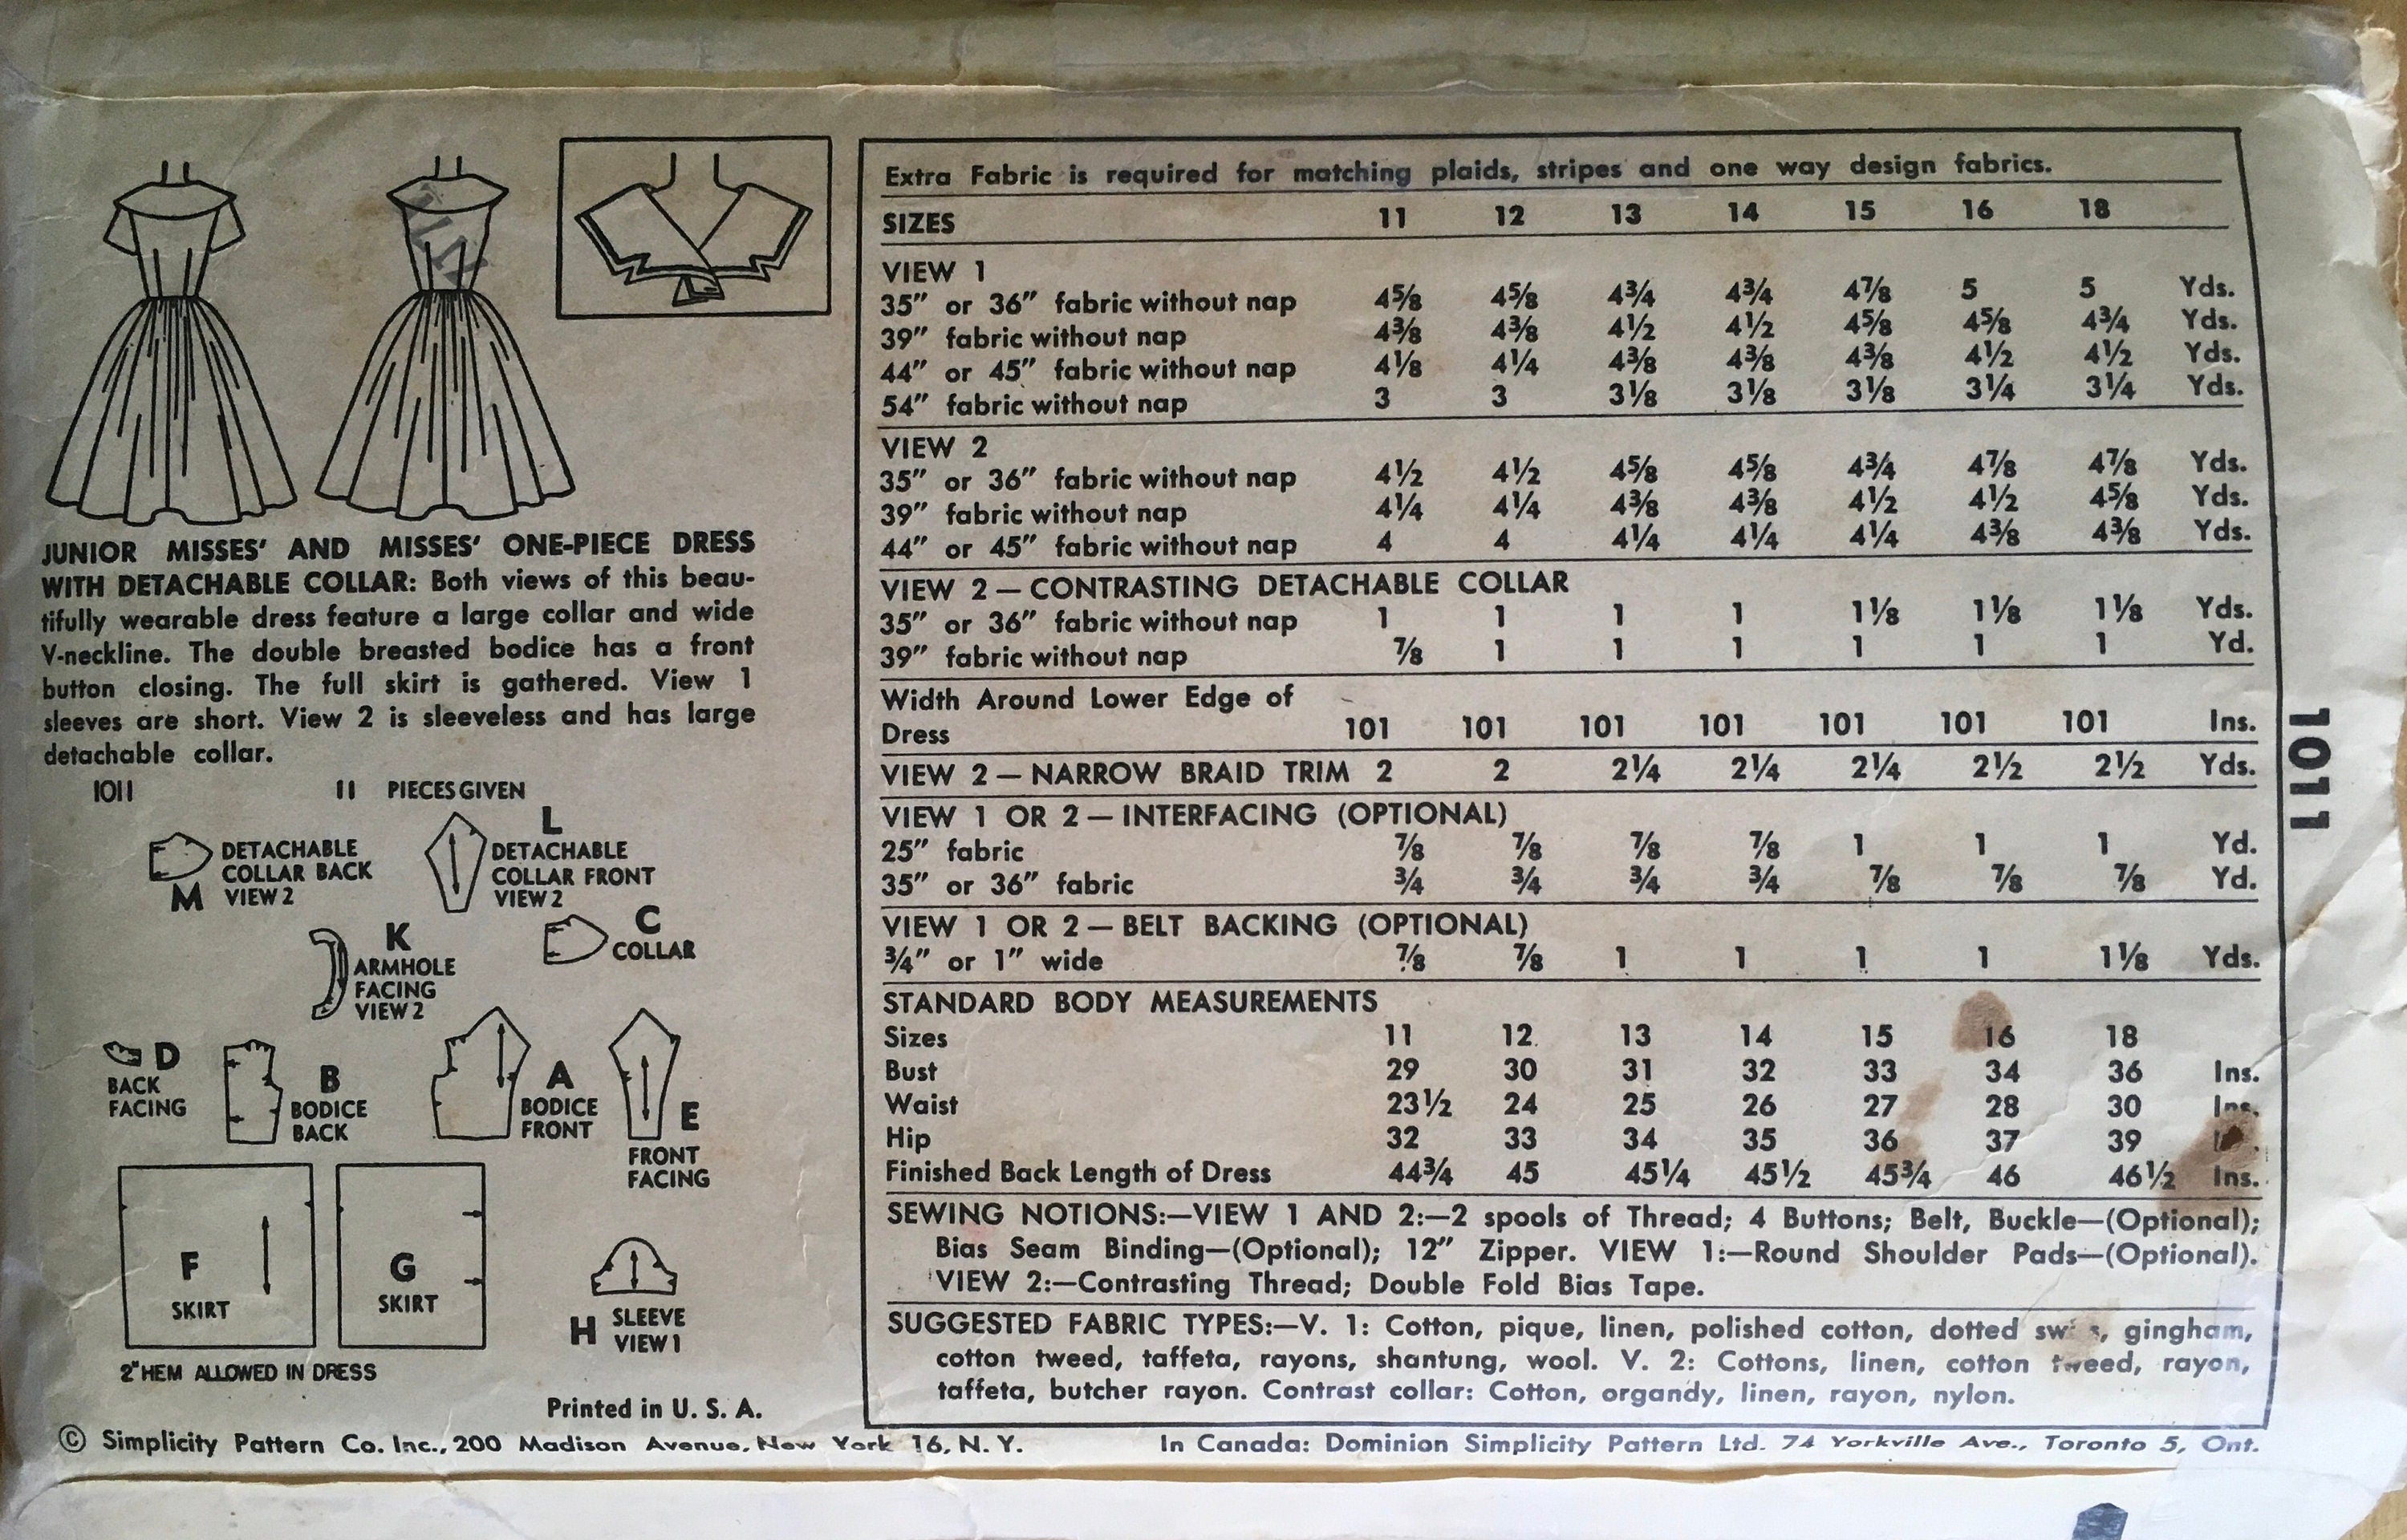 JUNIOR MISSES' AND MISSES' ONE-PIECE DRESS
WITH DETACHABLE COLLAR: Both views of this beau-
tifully wearable dress feature a large collar and wide
V-neckline. The double breasted bodice has a front
button closing. The full skirt is gathered. View 1
sleeves are short. View 2 is sleeveless and has large
detachable collar.
1011 11 PIECES GIVEN
DETACHABLE
COLLAR BACK
M VIEW 2
L
DETACHABLE
COLLAR FRONT
VIEW 2
K
ARMHOLE
FACING
VIEW 2
C
COLLAR
D
BACK
FACING
B
BODICE
BACK
A
BODICE
FRONT
E
FRONT
FACING
F
SKIRT
G
SKIRT
H SLEEVE
VIEW 1
2" HEM ALLOWED IN DRESS
Printed in U. S. A.
Extra Fabric is required for matching plaids, stripes and one way design fabrics.
SIZES 11 12 13 14 15 16 18
VIEW 1
35" or 36" fabric without nap 4⅝ 4⅝ 4¾ 4¾ 4⅞ 5 5 Yds.
39" fabric without nap 4⅜ 4⅜ 4½ 4½ 4⅝ 4⅝ 4¾ Yds.
44" or 45" fabric without nap 4⅛ 4¼ 4⅜ 4⅜ 4⅜ 4½ 4½ Yds.
54" fabric without nap 3 3 3⅛ 3⅛ 3⅛ 3¼ 3¼ Yds.
VIEW 2
35" or 36" fabric without nap 4½ 4½ 4⅝ 4⅝ 4¾ 4⅞ 4⅞ Yds.
39" fabric without nap 4¼ 4¼ 4⅜ 4⅜ 4½ 4½ 4⅝ Yds.
44" or 45" fabric without nap 4 4 4¼ 4¼ 4¼ 4⅜ 4⅜ Yds.
VIEW 2 — CONTRASTING DETACHABLE COLLAR
35" or 36" fabric without nap 1 1 1 1 1⅛ 1⅛ 1⅛ Yds.
39" fabric without nap ⅞ 1 1 1 1 1 1 Yd.
Width Around Lower Edge of
Dress 101 101 101 101 101 101 101 Ins.
VIEW 2 — NARROW BRAID TRIM 2 2 2¼ 2¼ 2¼ 2½ 2½ Yds.
VIEW 1 OR 2 — INTERFACING (OPTIONAL)
25" fabric ⅞ ⅞ ⅞ ⅞ 1 1 1 Yd.
35" or 36" fabric ¾ ¾ ¾ ¾ ⅞ ⅞ ⅞ Yd.
VIEW 1 OR 2 — BELT BACKING (OPTIONAL)
¾" or 1" wide ⅞ ⅞ 1 1 1 1 1⅛ Yds.
STANDARD BODY MEASUREMENTS
Sizes 11 12 13 14 15 16 18
Bust 29 30 31 32 33 34 36 Ins.
Waist 23½ 24 25 26 27 28 30 Ins.
Hip 32 33 34 35 36 37 39
Finished Back Length of Dress 44¾ 45 45¼ 45½ 45¾ 46 46½ Ins.
SEWING NOTIONS:—VIEW 1 AND 2:—2 spools of Thread; 4 Buttons; Belt, Buckle—(Optional);
Bias Seam Binding—(Optional); 12" Zipper. VIEW 1:—Round Shoulder Pads—(Optional).
VIEW 2:—Contrasting Thread; Double Fold Bias Tape.
SUGGESTED FABRIC TYPES:—V. 1: Cotton, pique, linen, polished cotton, dotted swiss, gingham,
cotton tweed, taffeta, rayons, shantung, wool. V. 2: Cottons, linen, cotton tweed, rayon,
taffeta, butcher rayon. Contrast collar: Cotton, organdy, linen, rayon, nylon.
1011
© Simplicity Pattern Co. Inc., 200 Madison Avenue, New York 16, N. Y. In Canada: Dominion Simplicity Pattern Ltd. 74 Yorkville Ave., Toronto 5, Ont.